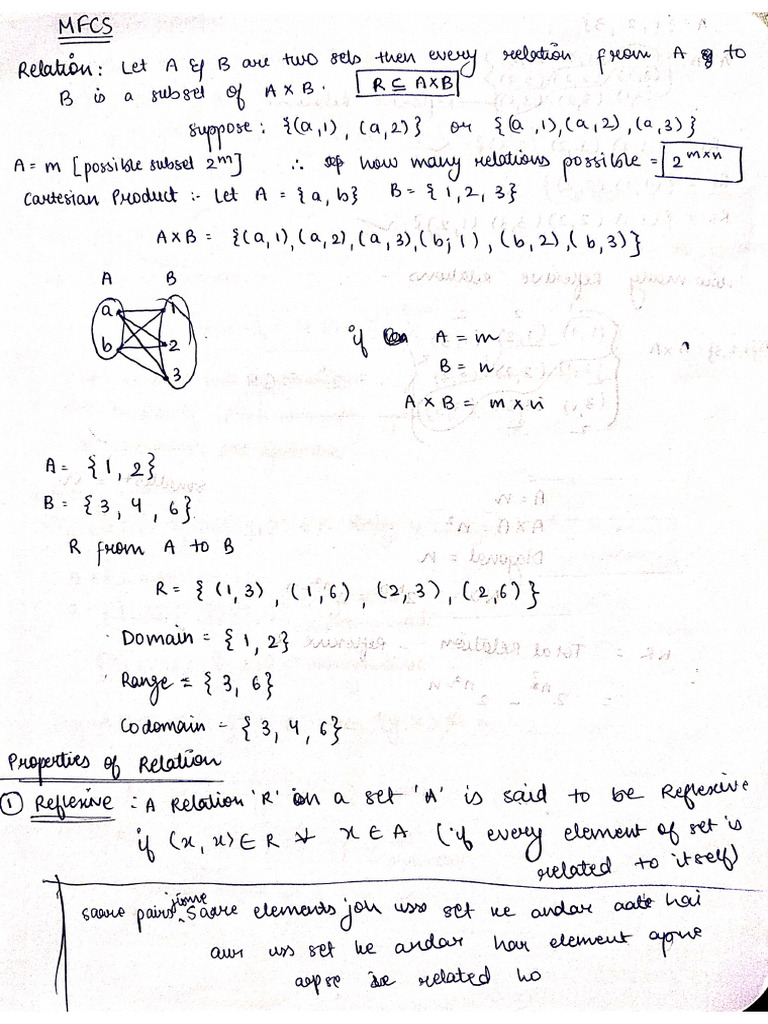 MFCS
Relation: Let A & B are two sets then every relation from A to
B is a subset of A × B. R ⊆ A×B
suppose: {(a,1), (a,2)} or {(a,1),(a,2),(a,3)}
A = m [possible subset 2^m] ∴ how many relations possible = 2^m×n
Cartesian Product :- Let A = {a, b} B = {1, 2, 3}
A×B = {(a,1),(a,2),(a,3),(b,1),(b,2),(b,3)}
A B
a 1
b 2
3
if A = m
B = n
A × B = m × n
A = {1, 2}
B = {3, 4, 6}
R from A to B
R = {(1,3), (1,6), (2,3), (2,6)}
Domain = {1, 2}
Range = {3, 6}
Codomain = {3, 4, 6}
Properties of Relation
① Reflexive : A Relation 'R' on a set 'A' is said to be Reflexive
if (x, x) ∈ R ∀ x ∈ A (if every element of set is
related to itself)
saare pairs jisme saare elements jou uss set ke andar aate hai
aur uss set ke andar har element apne
aapse related ho